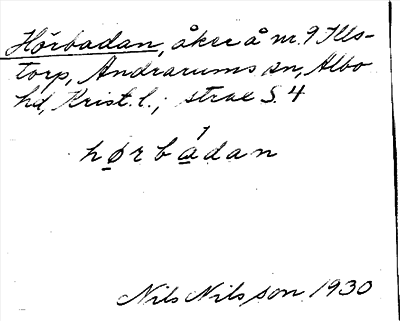 Hörbadan, åker å nr. 9 Ills-
torp, Andrarums sn, Albo
hd, Krist. l.; strax S. 4
hørbadan
Nils Nilsson 1930